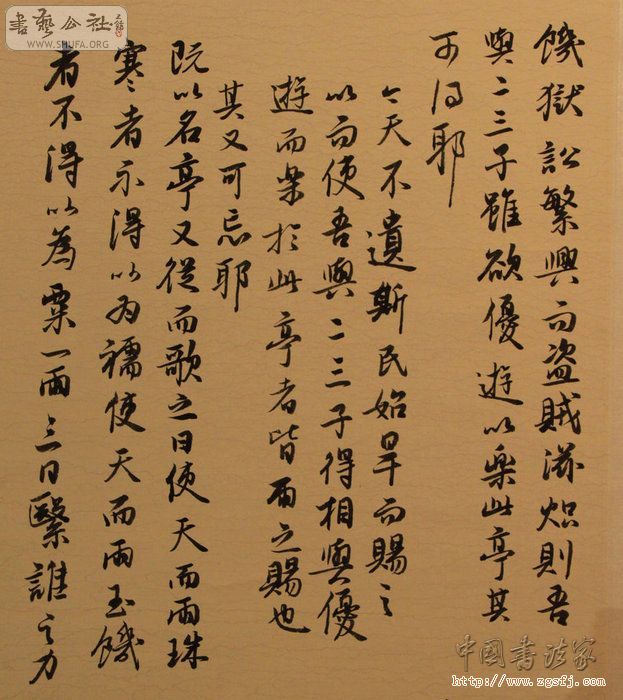 書藝公社
WWW.SHUFA.ORG
饑獄訟繁興而盗賊滋熾則吾
與二三子雖欲優遊以樂此亭其
可得耶
今天不遺斯民始旱而賜之
以雨使吾與二三子得相與優
遊而樂於此亭者皆雨之賜也
其又可忘耶
既以名亭又從而歌之曰使天而雨珠
寒者不得以为襦使天而雨玉饑
者不得以為粟一雨三日繄誰之力
中国書法家
http://www.zgsfj.com